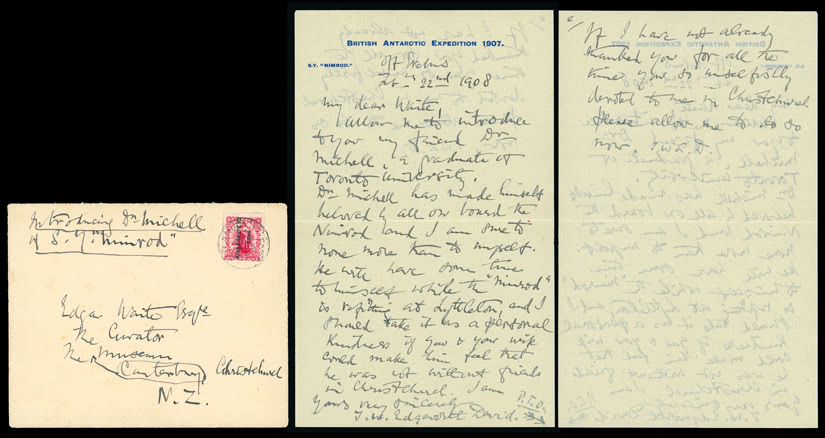 Introducing Dr Michell
of S. Y. "Nimrod"
Edgar Waite Esqre
The Curator
The Museum
Canterbury Christchurch
N.Z.
BRITISH ANTARCTIC EXPEDITION 1907.
S.Y. "NIMROD."
Off
Feb. 22nd 1908
My dear Waite,
Allow me to introduce
to you my friend Dr
Michell, a graduate of
Toronto University.
Dr Michell has made himself
beloved by all on board the
Nimrod and I am sure to
none more than to myself.
He will have some time
to himself while the "Nimrod"
is refitting at Lyttleton, and I
should take it as a personal
kindness if you & your wife
could make him feel that
he was not without friends
in Christchurch. I am
Yours very sincerely P.T.O.
T.W. Edgeworth David.
2/
If I have not already
thanked you for all the
time you so unselfishly
devoted to me in Christchurch
please allow me to do so
now. T.W.E.D.